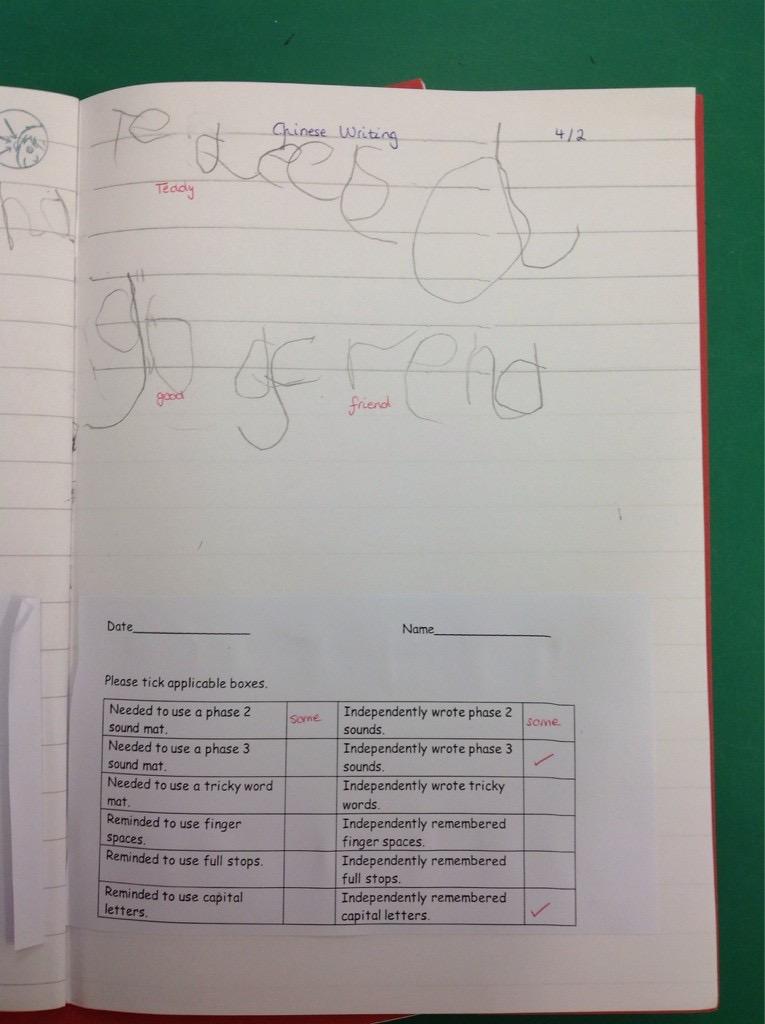 Chinese Writing 4/2
Te dees a
Teddy
gb gf rend
good friend
Date____________ Name____________
Please tick applicable boxes.
Needed to use a phase 2 sound mat. some Independently wrote phase 2 sounds. some
Needed to use a phase 3 sound mat. Independently wrote phase 3 sounds. ✓
Needed to use a tricky word mat. Independently wrote tricky words.
Reminded to use finger spaces. Independently remembered finger spaces.
Reminded to use full stops. Independently remembered full stops.
Reminded to use capital letters. Independently remembered capital letters. ✓